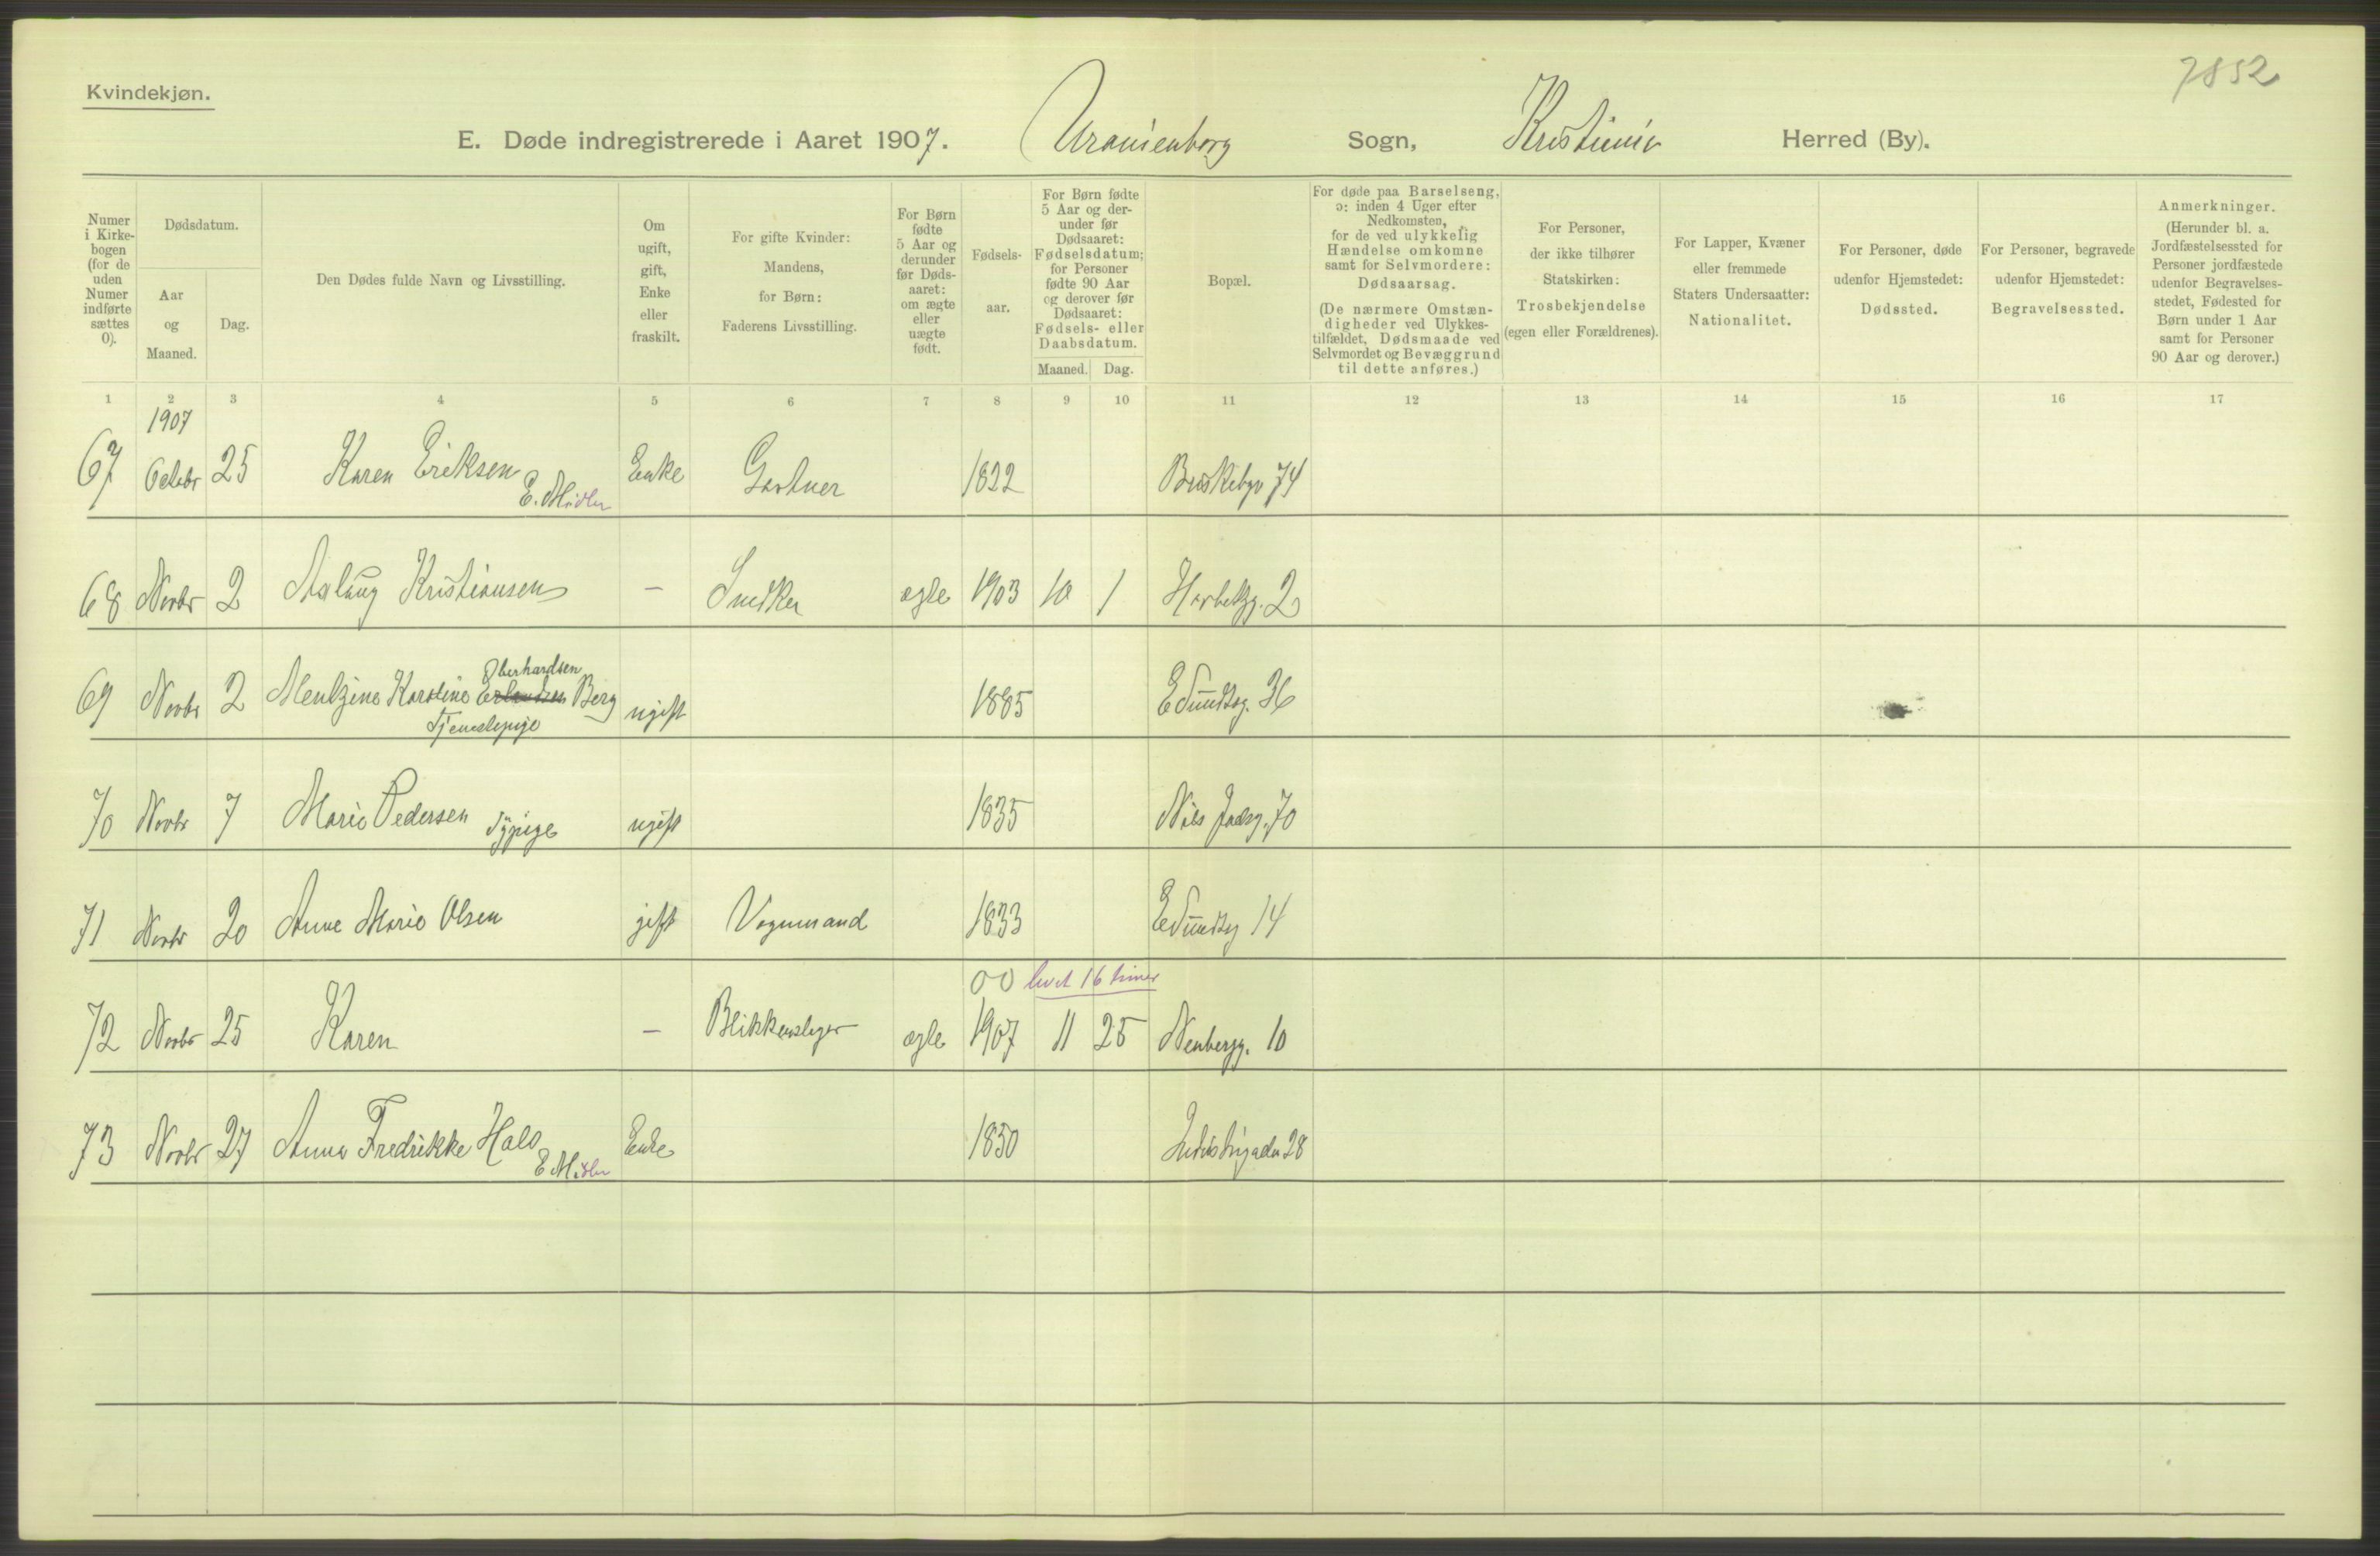 7852
Kvindekjøn.
E. Døde indregistrerede i Aaret 1907. Uranienborg Sogn, Kristiania Herred (By).
Numer i Kirkebogen (for de uden Numer indførte sættes 0).
Dødsdatum.
Aar og Maaned.
Dag.
Den Dødes fulde Navn og Livsstilling.
Om ugift, gift, Enke eller fraskilt.
For gifte Kvinder: Mandens, for Børn: Faderens Livsstilling.
For Børn fødte 5 Aar og derunder før Dødsaaret: om ægte eller uægte født.
Fødselsaar.
For Børn fødte 5 Aar og derunder før Dødsaaret: Fødselsdatum; for Personer fødte 90 Aar og derover før Dødsaaret: Fødsels- eller Daabsdatum.
Maaned. Dag.
Bopæl.
For døde paa Barselseng, ɔ: inden 4 Uger efter Nedkomsten, for de ved ulykkelig Hændelse omkomne samt for Selvmordere: Dødsaarsag.
(De nærmere Omstændigheder ved Ulykkestilfældet, Dødsmaade ved Selvmordet og Bevæggrund til dette anføres.)
For Personer, der ikke tilhører Statskirken: Trosbekjendelse (egen eller Forældrenes).
For Lapper, Kvæner eller fremmede Staters Undersaatter: Nationalitet.
For Personer, døde udenfor Hjemstedet: Dødssted.
For Personer, begravede udenfor Hjemstedet: Begravelsessted.
Anmerkninger. (Herunder bl. a. Jordfæstelsessted for Personer jordfæstede udenfor Begravelsesstedet, Fødested for Børn under 1 Aar samt for Personer 90 Aar og derover.)
1 2 3 4 5 6 7 8 9 10 11 12 13 14 15 16 17
1907
67 Octobr 25 Karen Eriksen Enke Gartner 1822 Briskebyv 74
E. Midler
68 Novbr 2 Aslaug Kristiansen – Snedker ægte 1903 10 1 Holbergg. 2
Eberhardsen
69 Novbr 2 Mentzine Karoline Erlandsen Berg ugift 1885 E Sundtsg. 36
Tjenestepige
70 Novbr 7 Marie Pedersen Sypige ugift 1835 Nils Juelsg. 70
71 Novbr 20 Anne Marie Olsen gift Vognmand 1833 E Sundtsg 14
00 levet 16 timer
72 Novbr 25 Karen – Blikkenslager ægte 1907 11 25 10
73 Novbr 27 Anna Fredrikke Hals Enke 1850 Industrigaden 28
E. Midler